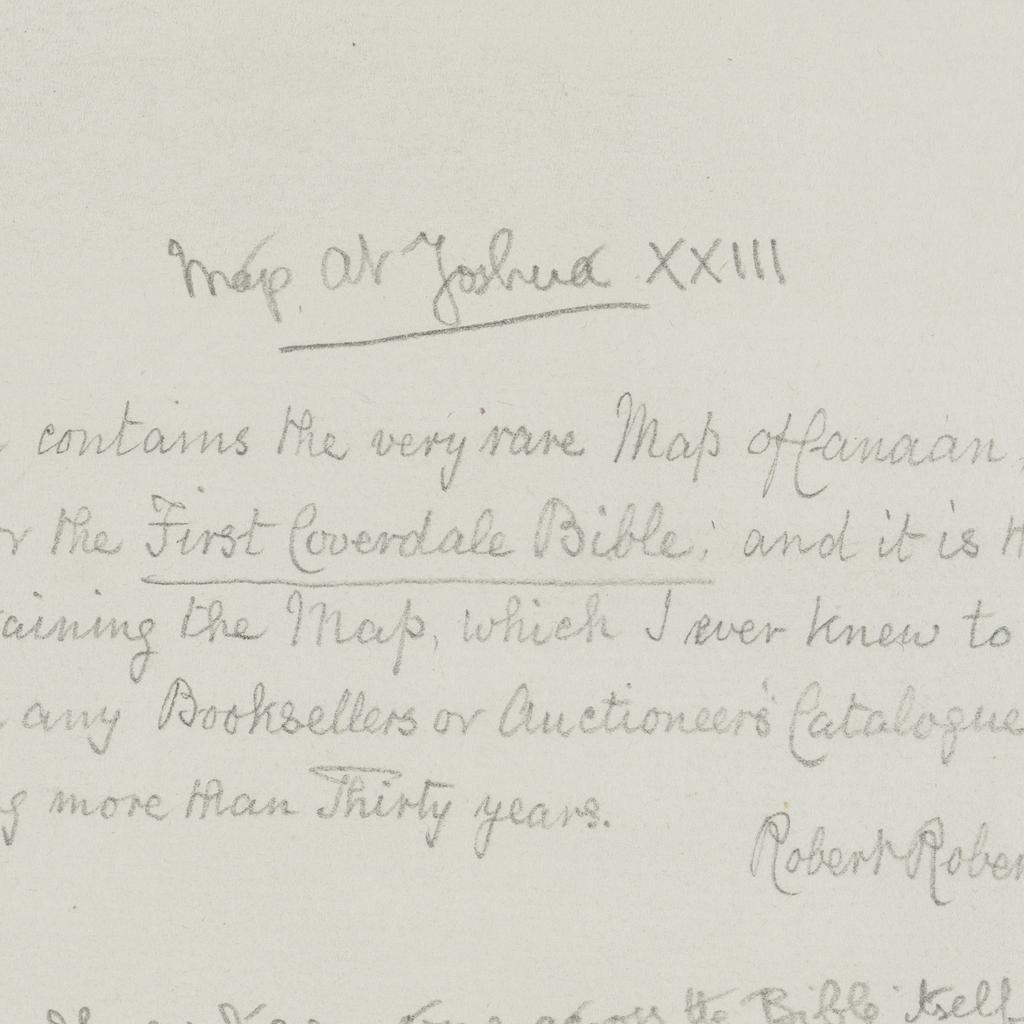 Map at Joshua XXIII
contains the very rare Map of Canaan,
the First Coverdale Bible; and it is
aining the Map, which I ever knew to
any Booksellers or Auctioneer's Catalogue
g more than Thirty years.
Robert Rober
across the Bible itself